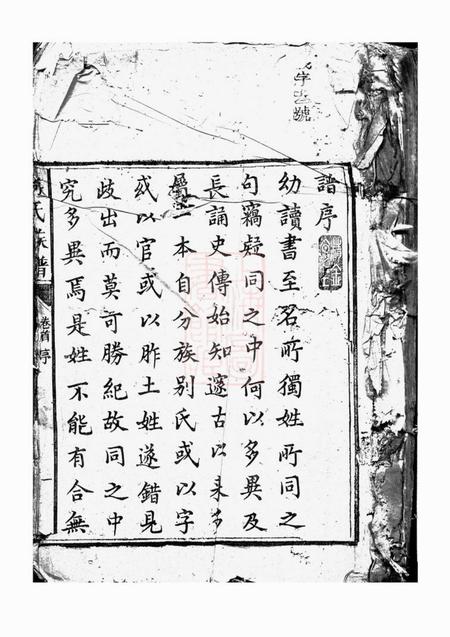 字 號
譜序
幼讀書至名所獨姓所同之
句竊疑同之中何以多異及
長誦史傳始知邃古以來
一本自分族别氏或以字
或以官或以胙土姓遂錯見
歧出而莫可勝紀故同之中
究多異焉是姓不能有合無
氏族譜 卷首 序